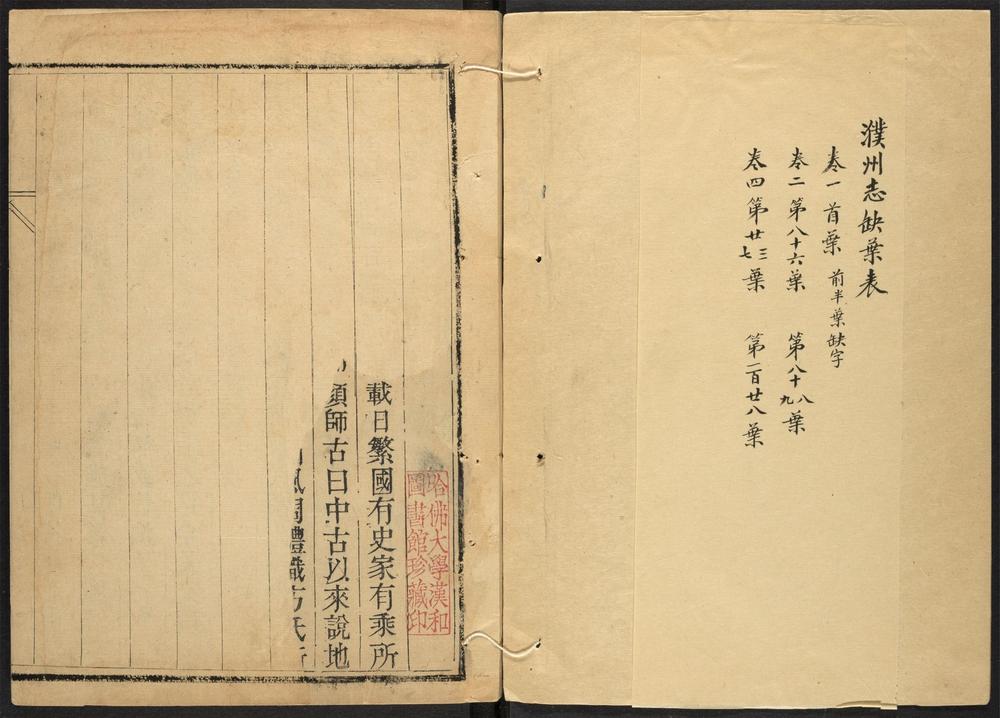 濮州志缺葉表
卷一首葉 前半葉缺字
卷二第八十六葉 第八十八九葉
卷四第廿三七葉 第一百廿八葉
哈佛大學漢和
圖書館珍藏印
載日繁國有史家有乘所
須師古曰中古以來說地
風周禮職方氏